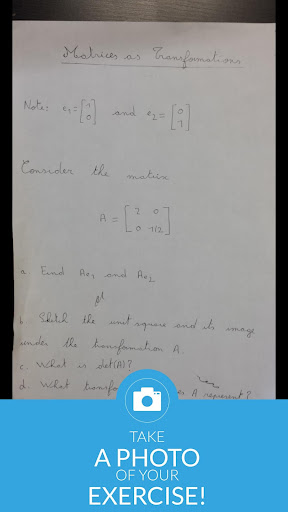 Matrices as Transformations
Note: e1 = [1 0] and e2 = [0 1]
Consider the matrix
A = [2 0 0 1/2]
a. Find Ae1 and Ae2
b. Sketch the unit square and its image
under the transformation A.
c. What is det(A)?
d. What A represent?
TAKE
A PHOTO
OF YOUR
EXERCISE!